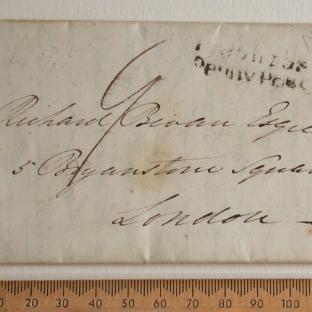 Penny Post
Richard Bevan Esqre
5 Bryanstone Square
London
10 20 30 40 50 60 70 80 90 100